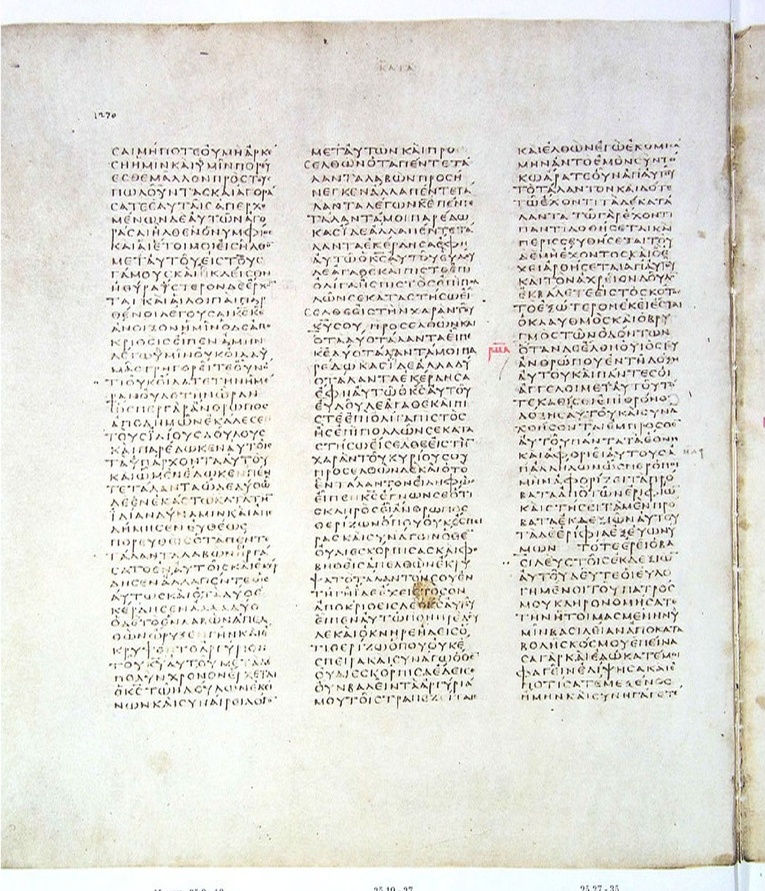 ΚΑΤΑ
1270
ΣΑΙΜΗΠΟΤΕΟΥΜΗΑΡΚΕ
ΣΗΗΜΙΝΚΑΙΥΜΙΝΠΟΡΕΥ
ΕΣΘΕΜΑΛΛΟΝΠΡΟΣΤΟΥΣ
ΠΩΛΟΥΝΤΑΣΚΑΙΑΓΟΡΑ
ΣΑΤΕΕΑΥΤΑΙΣΑΠΕΡΧΟ
ΜΕΝΩΝΔΕΑΥΤΩΝΑΓΟ
ΡΑΣΑΙΗΛΘΕΝΟΝΥΜΦΙΟΣ
ΚΑΙΑΙΕΤΟΙΜΟΙΕΙΣΗΛΘΟΝ
ΜΕΤΑΥΤΟΥΕΙΣΤΟΥΣ
ΓΑΜΟΥΣΚΑΙΕΚΛΕΙΣΘΗ
ΗΘΥΡΑΥΣΤΕΡΟΝΔΕΕΡΧΟΝ
ΤΑΙΚΑΙΑΙΛΟΙΠΑΙΠΑΡ
ΘΕΝΟΙΛΕΓΟΥΣΑΙΚΕΚΕ
ΑΝΟΙΞΟΝΗΜΙΝΟΔΕΑΠΟ
ΚΡΙΘΕΙΣΕΙΠΕΝΑΜΗΝ
ΛΕΓΩΥΜΙΝΟΥΚΟΙΔΑΥ
ΜΑΣΓΡΗΓΟΡΕΙΤΕΟΥΝΟ
ΤΙΟΥΚΟΙΔΑΤΕΤΗΝΗΜΕ
ΡΑΝΟΥΔΕΤΗΝΩΡΑΝ
ΩΣΠΕΡΓΑΡΑΝΘΡΩΠΟΣ
ΑΠΟΔΗΜΩΝΕΚΑΛΕΣΕ
ΤΟΥΣΙΔΙΟΥΣΔΟΥΛΟΥΣ
ΚΑΙΠΑΡΕΔΩΚΕΝΑΥΤΟΙΣ
ΤΑΥΠΑΡΧΟΝΤΑΑΥΤΟΥ
ΚΑΙΩΜΕΝΕΔΩΚΕΠΕΝ
ΤΕΤΑΛΑΝΤΑΩΔΕΔΥΟΩ
ΔΕΕΝΕΚΑΣΤΩΚΑΤΑΤΗ
ΙΔΙΑΝΔΥΝΑΜΙΝΚΑΙΑΠΕ
ΔΗΜΗΣΕΝΕΥΘΕΩΣ
ΠΟΡΕΥΘΕΙΣΟΤΑΠΕΝΤΕ
ΤΑΛΑΝΤΑΛΑΒΩΝΗΡΓΑ
ΣΑΤΟΕΝΑΥΤΟΙΣΚΑΙΕΚΕΡ
ΔΗΣΕΝΑΛΛΑΠΕΝΤΕΩΣ
ΑΥΤΩΣΚΑΙΟΤΑΔΥΟΕ
ΚΕΡΔΗΣΕΝΑΛΛΑΔΥΟ
ΟΔΕΤΟΕΝΛΑΒΩΝΑΠΕΛ
ΘΩΝΩΡΥΞΕΝΓΗΝΚΑΙΕ
ΚΡΥΨΕΤΟΑΡΓΥΡΙΟΝ
ΤΟΥΚΥΑΥΤΟΥΜΕΤΑΔΕ
ΠΟΛΥΝΧΡΟΝΟΝΕΡΧΕΤΑΙ
ΟΚΣΤΩΝΔΟΥΛΩΝΕΚΕΙ
ΝΩΝΚΑΙΣΥΝΑΙΡΕΙΛΟΓΟΝ
ΜΕΤΑΥΤΩΝΚΑΙΠΡΟ
ΣΕΛΘΩΝΟΤΑΠΕΝΤΕΤΑ
ΛΑΝΤΑΛΑΒΩΝΠΡΟΣΗ
ΝΕΓΚΕΝΑΛΛΑΠΕΝΤΕΤΑ
ΛΑΝΤΑΛΕΓΩΝΚΕΠΕΝΤΕ
ΤΑΛΑΝΤΑΜΟΙΠΑΡΕΔΩ
ΚΑΣΙΔΕΑΛΛΑΠΕΝΤΕΤΑ
ΛΑΝΤΑΕΚΕΡΔΗΣΑΕΦΗ
ΑΥΤΩΟΚΣΑΥΤΟΥΕΥΔΟΥ
ΛΕΑΓΑΘΕΚΑΙΠΙΣΤΕΕΠΙ
ΟΛΙΓΑΗΣΠΙΣΤΟΣΕΠΙΠΟΛ
ΛΩΝΣΕΚΑΤΑΣΤΗΣΩΕΙ
ΣΕΛΘΕΕΙΣΤΗΝΧΑΡΑΝΤΟΥ
ΚΥΣΟΥΠΡΟΣΕΛΘΩΝΚΑΙ
ΟΤΑΔΥΟΤΑΛΑΝΤΑΕΙΠΕ
ΚΕΔΥΟΤΑΛΑΝΤΑΜΟΙΠΑ
ΡΕΔΩΚΑΣΙΔΕΑΛΛΑΔΥ
ΟΤΑΛΑΝΤΑΕΚΕΡΔΗΣΑ
ΕΦΗΑΥΤΩΟΚΣΑΥΤΟΥ
ΕΥΔΟΥΛΕΑΓΑΘΕΚΑΙΠΙ
ΣΤΕΕΠΙΟΛΙΓΑΠΙΣΤΟΣ
ΗΣΕΠΙΠΟΛΛΩΝΣΕΚΑΤΑ
ΣΤΗΣΩΕΙΣΕΛΘΕΕΙΣΤΗΝ
ΧΑΡΑΝΤΟΥΚΥΡΙΟΥΣΟΥ
ΠΡΟΣΕΛΘΩΝΔΕΚΑΙΟΤΟ
ΕΝΤΑΛΑΝΤΟΝΕΙΛΗΦΩΣ
ΕΙΠΕΝΚΕΕΓΝΩΝΣΕΟΤΙ
ΣΚΛΗΡΟΣΕΙΑΝΘΡΩΠΟΣ
ΘΕΡΙΖΩΝΟΠΟΥΟΥΚΕΣΠΕΙ
ΡΑΣΚΑΙΣΥΝΑΓΩΝΟΘΕ
ΟΥΔΙΕΣΚΟΡΠΙΣΑΣΚΑΙΦΟ
ΒΗΘΕΙΣΑΠΕΛΘΩΝΕΚΡΥ
ΨΑΤΟΤΑΛΑΝΤΟΝΣΟΥΕΝ
ΤΗΓΗΙΔΕΕΧΕΙΣΤΟΣΟΝ
ΑΠΟΚΡΙΘΕΙΣΔΕΟΚΣΑΥΤΟΥ
ΕΙΠΕΝΑΥΤΩΠΟΝΗΡΕΔΟΥ
ΛΕΚΑΙΟΚΝΗΡΕΗΔΕΙΣΟ
ΤΙΘΕΡΙΖΩΟΠΟΥΟΥΚΕ
ΣΠΕΙΡΑΚΑΙΣΥΝΑΓΩΟΘΕ
ΟΥΔΙΕΣΚΟΡΠΙΣΑΕΔΕΙΣΕ
ΟΥΝΒΑΛΕΙΝΤΑΑΡΓΥΡΙΑ
ΜΟΥΤΟΙΣΤΡΑΠΕΖΕΙΤΑΙΣ
ΚΑΙΕΛΘΩΝΕΓΩΕΚΟΜΙΣΑ
ΜΗΝΑΝΤΟΕΜΟΝΣΥΝΤΟ
ΚΩΑΡΑΤΕΟΥΝΑΠΑΥΤΟΥ
ΤΟΤΑΛΑΝΤΟΝΚΑΙΔΟΤΕ
ΤΩΕΧΟΝΤΙΤΑΔΕΚΑΤΑ
ΛΑΝΤΑΤΩΓΑΡΕΧΟΝΤΙ
ΠΑΝΤΙΔΟΘΗΣΕΤΑΙΚΑΙ
ΠΕΡΙΣΣΕΥΘΗΣΕΤΑΙΤΟΥ
ΔΕΜΗΕΧΟΝΤΟΣΚΑΙΟΕ
ΧΕΙΑΡΘΗΣΕΤΑΙΑΠΑΥΤΟΥ
ΚΑΙΤΟΝΑΧΡΕΙΟΝΔΟΥΛΟΝ
ΕΚΒΑΛΕΤΕΕΙΣΤΟΣΚΟΤΟΣ
ΤΟΕΞΩΤΕΡΟΝΕΚΕΙΕΣΤΑΙ
ΟΚΛΑΥΘΜΟΣΚΑΙΟΒΡΥ
ΓΜΟΣΤΩΝΟΔΟΝΤΩΝ
ΡΜΑ
ΟΤΑΝΔΕΕΛΘΗΟΥΙΟΣΤΟΥ
ΑΝΘΡΩΠΟΥΕΝΤΗΔΟΞΗ
ΑΥΤΟΥΚΑΙΠΑΝΤΕΣΟΙ
ΑΓΓΕΛΟΙΜΕΤΑΥΤΟΥΤΟ
ΤΕΚΑΘΙΣΕΙΕΠΙΘΡΟΝΟΥ
ΔΟΞΗΣΑΥΤΟΥΚΑΙΣΥΝΑ
ΧΘΗΣΟΝΤΑΙΕΜΠΡΟΣΘΕ
ΑΥΤΟΥΠΑΝΤΑΤΑΕΘΝΗ
ΚΑΙΑΦΟΡΙΕΙΑΥΤΟΥΣΑ
ΠΑΛΛΗΛΩΝΩΣΠΕΡΟΠΟΙ
ΜΗΝΑΦΟΡΙΖΕΙΤΑΠΡΟ
ΒΑΤΑΑΠΟΤΩΝΕΡΙΦΙΩΝ
ΚΑΙΣΤΗΣΕΙΤΑΜΕΝΠΡΟ
ΒΑΤΑΕΚΔΕΞΙΩΝΑΥΤΟΥ
ΤΑΔΕΕΡΙΦΙΑΕΞΕΥΩΝΥ
ΜΩΝ ΤΟΤΕΕΡΕΙΟΒΑ
ΣΙΛΕΥΣΤΟΙΣΕΚΔΕΞΙΩ
ΑΥΤΟΥΔΕΥΤΕΟΙΕΥΛΟ
ΓΗΜΕΝΟΙΤΟΥΠΑΤΡΟΣ
ΜΟΥΚΛΗΡΟΝΟΜΗΣΑΤΕ
ΤΗΝΗΤΟΙΜΑΣΜΕΝΗΝΥ
ΜΙΝΒΑΣΙΛΕΙΑΝΑΠΟΚΑΤΑ
ΒΟΛΗΣΚΟΣΜΟΥΕΠΕΙΝΑ
ΣΑΓΑΡΚΑΙΕΔΩΚΑΤΕΜΟΙ
ΦΑΓΕΙΝΕΔΙΨΗΣΑΚΑΙΕ
ΠΟΤΙΣΑΤΕΜΕΞΕΝΟΣ
ΗΜΗΝΚΑΙΣΥΝΗΓΑΓΕΤΕ
25,19 - 27
25,27 - 35